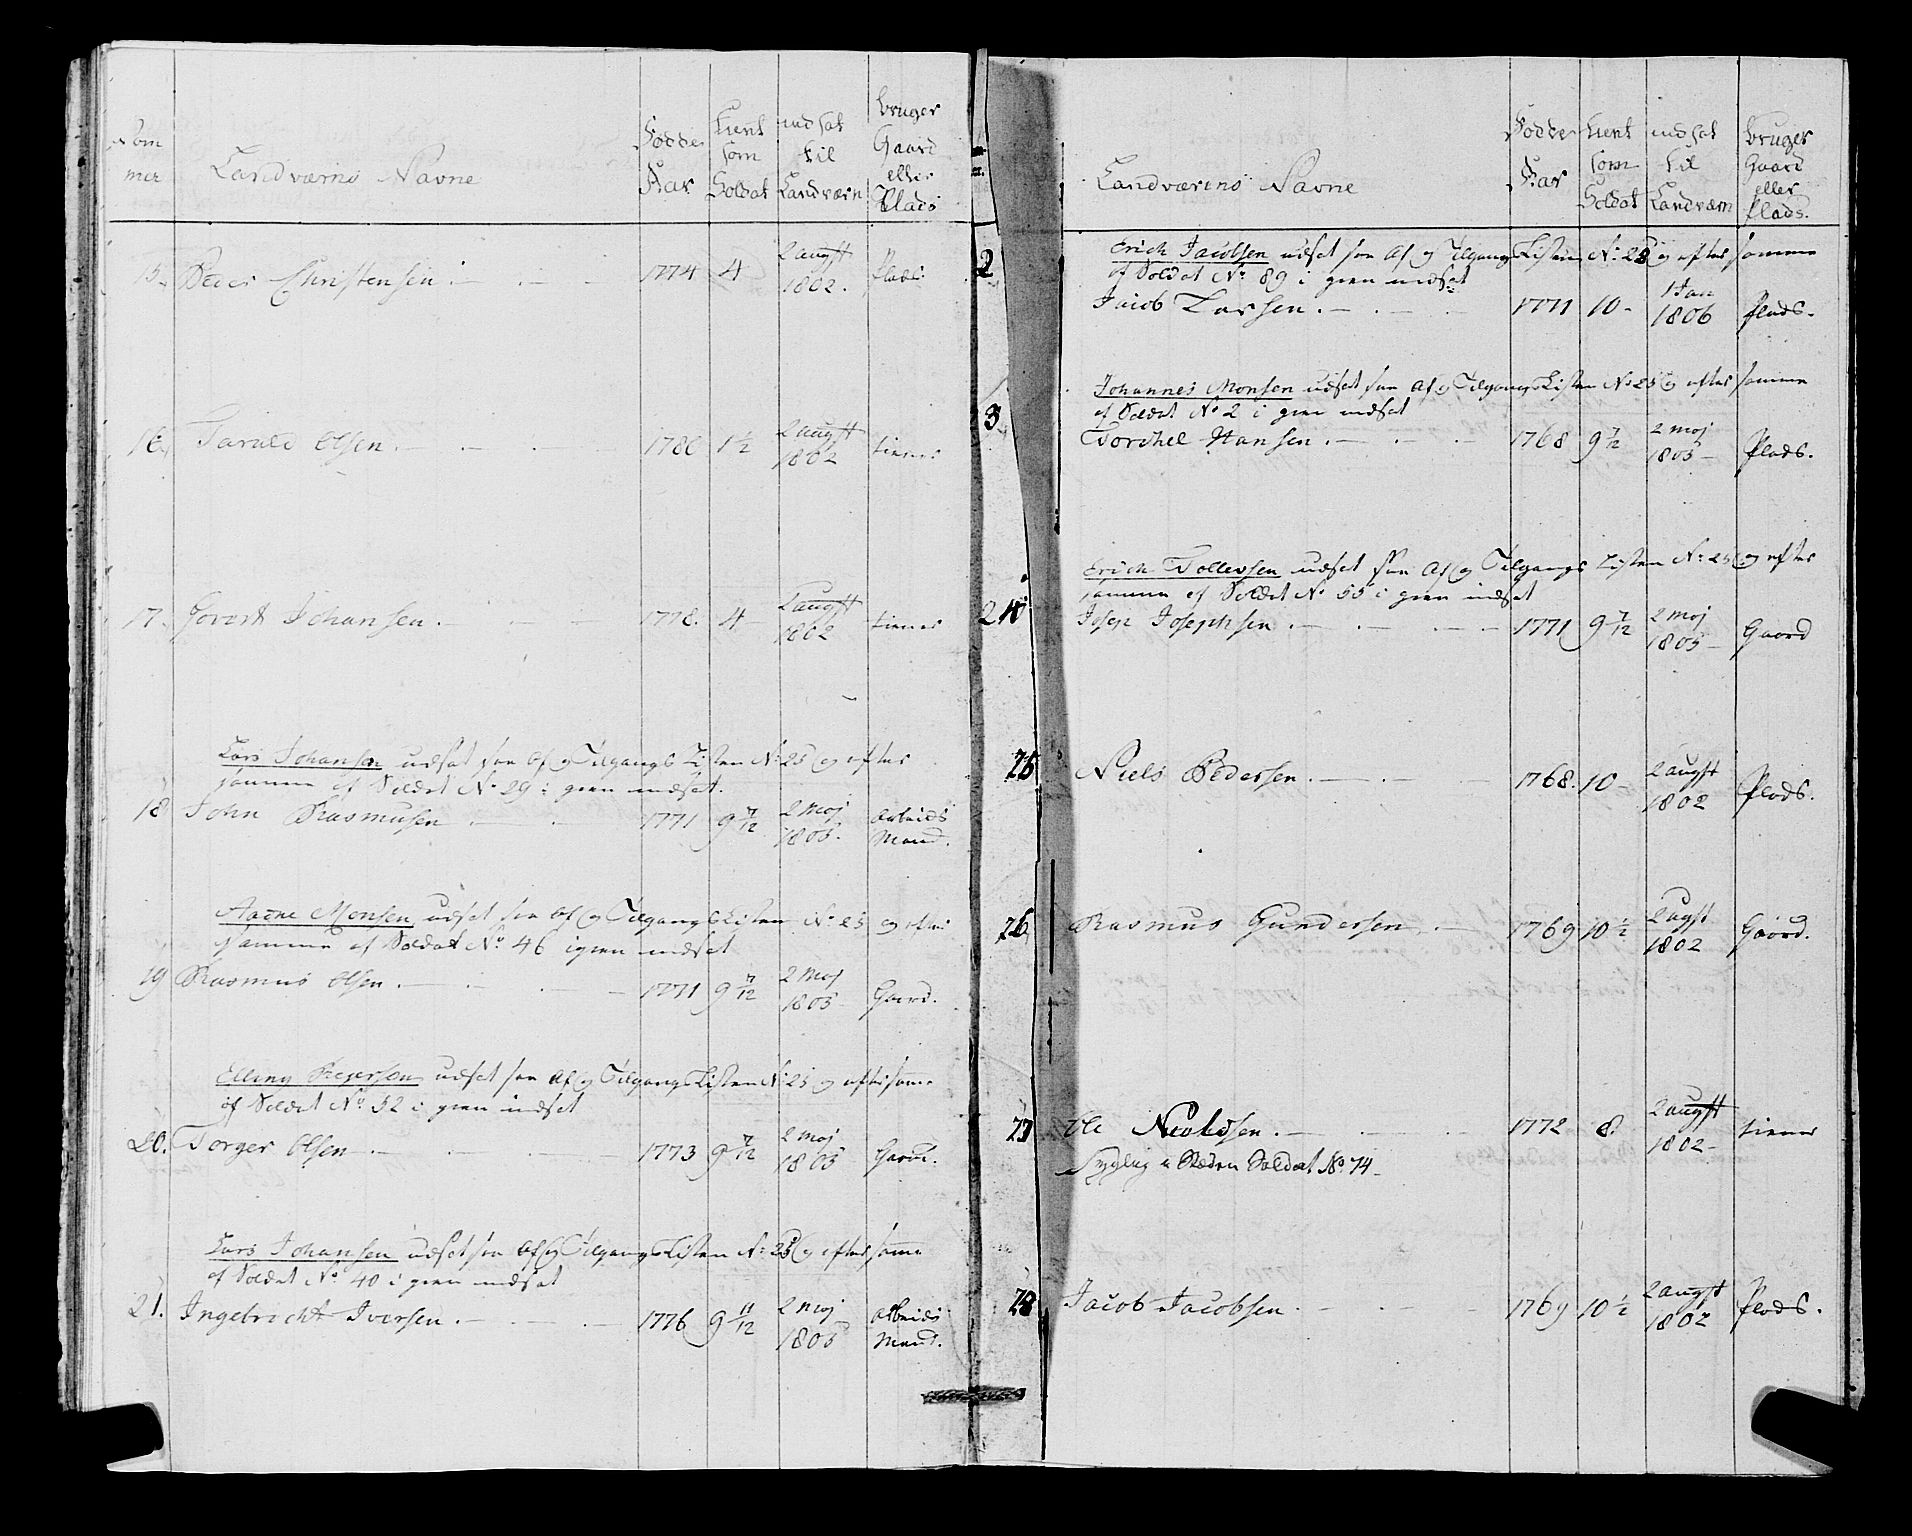 Nom
mer
Landværns Navne
Fødde
Aar
tient
som
Soldat
indsat
til
Landværn
bruger
Gaard
eller
Plads
15. Peder Christensen 1774 4 2 augst 1802. Plads
16. Tarald Olsen 1780 1½ 2 augst 1802 tiener
17. Govert Johansen 1778. 4 2 augst 1802 tiener
Lars Johansen udsat see Af og Tilgangs Listen No 25 og efter
samme af Soldat No 29 igien indsat.
18 John Rasmusen 1771 9 7/12 2 Maj 1805. arbeids Mand.
Aadne Monsen udset see Af og Tilgangs Listen No 25 og efter
samme af Soldat No 46 igien indsat
19 Rasmus Olsen 1771 9 7/12 2 Maj 1805 Gaard.
Elling Pedersen udset see Af og Tilgangs Listen No 25 og efter samme
af Soldat No 52 igien indsat
20. Torger Olsen 1773 9 7/12 2 Maj 1805 Gaard.
Lars Johansen udset see Af og Tilgangs Listen No 25 og efter samme
af Soldat No 40 igien indsat
21. Ingebricht Iversen 1776 9 11/12 2 Maj 1805 arbeids Mand.
Landværns Navne
Fødde
Aar
tient
som
Soldat
indsat
til
Landværn
bruger
Gaard
eller
Plads.
Erich Jacobsen udset see Af og Tilgangs Listen No 28 og efter samme
af Soldat No 89 igien indsat
2 Jacob Larsen 1771 10 1 Jan 1806 Plads.
Johannes Monsen udset see Af og Tilgangs Listen No 25 og efter samme
af Soldat No 2 igien indsat
3 Torchel Hansen 1768 9 7/12 2 Maj 1805 Plads.
Erich Tollevsen udset see Af og Tilgangs Listen No 25 og efter
samme af Soldat No 55 igien indsat
24 Josep Josephsen 1771 9 7/12 2 Maj 1805 Gaard
25 Niels Pedersen 1768. 10 2 augst 1802 Plads.
26 Rasmus Gundersen 1769 10½ 2 augst 1802 Gaard.
27 Ole 1772 8. 2 augst 1802 tiener
Soldat No 74
28 Jacob Jacobsen 1769 10½ 2 augst 1802 Plads.